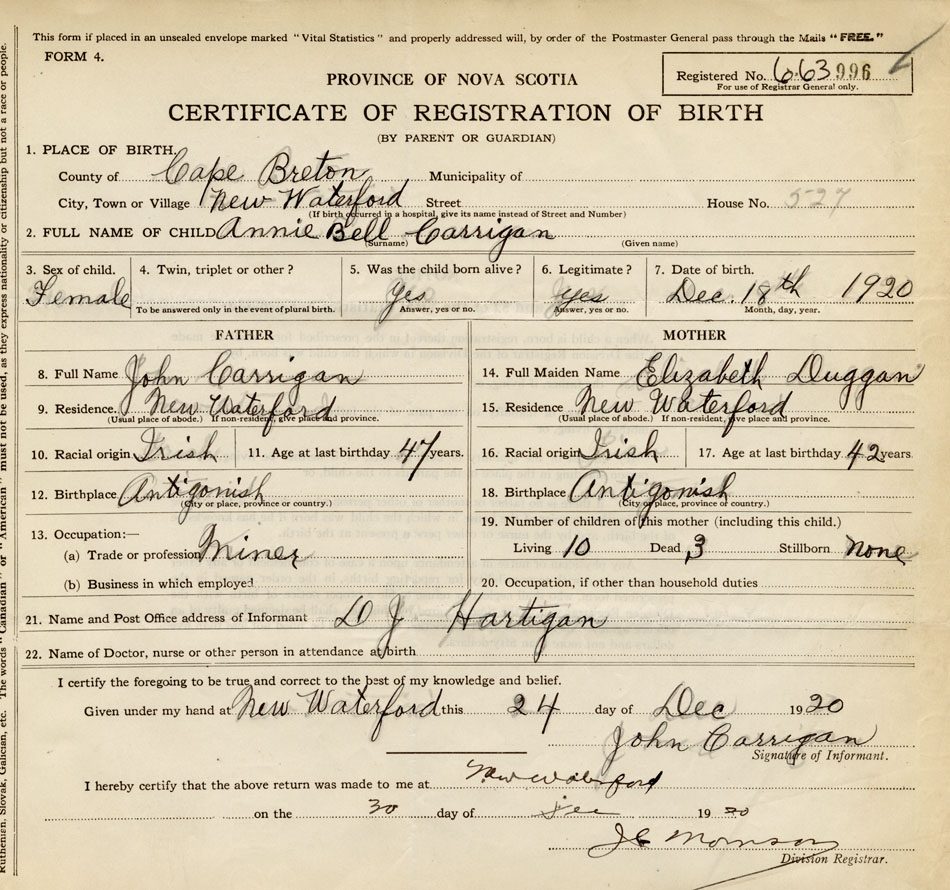 This form if placed in an unsealed envelope marked "Vital Statistics" and properly addressed will, by order of the Postmaster General pass through the Mails "FREE."
FORM 4.
Registered No. 663 996
For use of Registrar General only.
PROVINCE OF NOVA SCOTIA
CERTIFICATE OF REGISTRATION OF BIRTH
(BY PARENT OR GUARDIAN)
1. PLACE OF BIRTH.
County of Cape Breton Municipality of
City, Town or Village New Waterford Street House No. 527
(If birth occurred in a hospital, give its name instead of Street and Number)
2. FULL NAME OF CHILD Annie Bell Carrigan
(Surname) (Given name)
3. Sex of child. 4. Twin, triplet or other? 5. Was the child born alive? 6. Legitimate? 7. Date of birth.
Female Yes yes Dec. 18th 1920
To be answered only in the event of plural birth. Answer, yes or no. Answer, yes or no. Month, day, year.
FATHER MOTHER
8. Full Name John Carrigan 14. Full Maiden Name Elizabeth Duggan
9. Residence. New Waterford 15. Residence New Waterford
(Usual place of abode.) If non-resident, give place and province. (Usual place of abode.) If non-resident, give place and province.
10. Racial origin Irish 11. Age at last birthday 47 years. 16. Racial origin Irish 17. Age at last birthday 42 years
12. Birthplace Antigonish 18. Birthplace Antigonish
(City or place, province or country.) (City or place, province or country.)
13. Occupation:— 19. Number of children of this mother (including this child.)
(a) Trade or profession Miner Living 10 Dead 3 Stillborn none
(b) Business in which employed 20. Occupation, if other than household duties
21. Name and Post Office address of Informant D J Hartigan
22. Name of Doctor, nurse or other person in attendance at birth
I certify the foregoing to be true and correct to the best of my knowledge and belief.
Given under my hand at New Waterford this 24 day of Dec 1920
John Carrigan
Signature of Informant.
I hereby certify that the above return was made to me at New Waterford
on the 30 day of Dec 1920
J C Morrison
Division Registrar.
Ruthenian, Slovak, Galician, etc. The words "Canadian" or "American" must not be used, as they express nationality or citizenship but not a race or people.